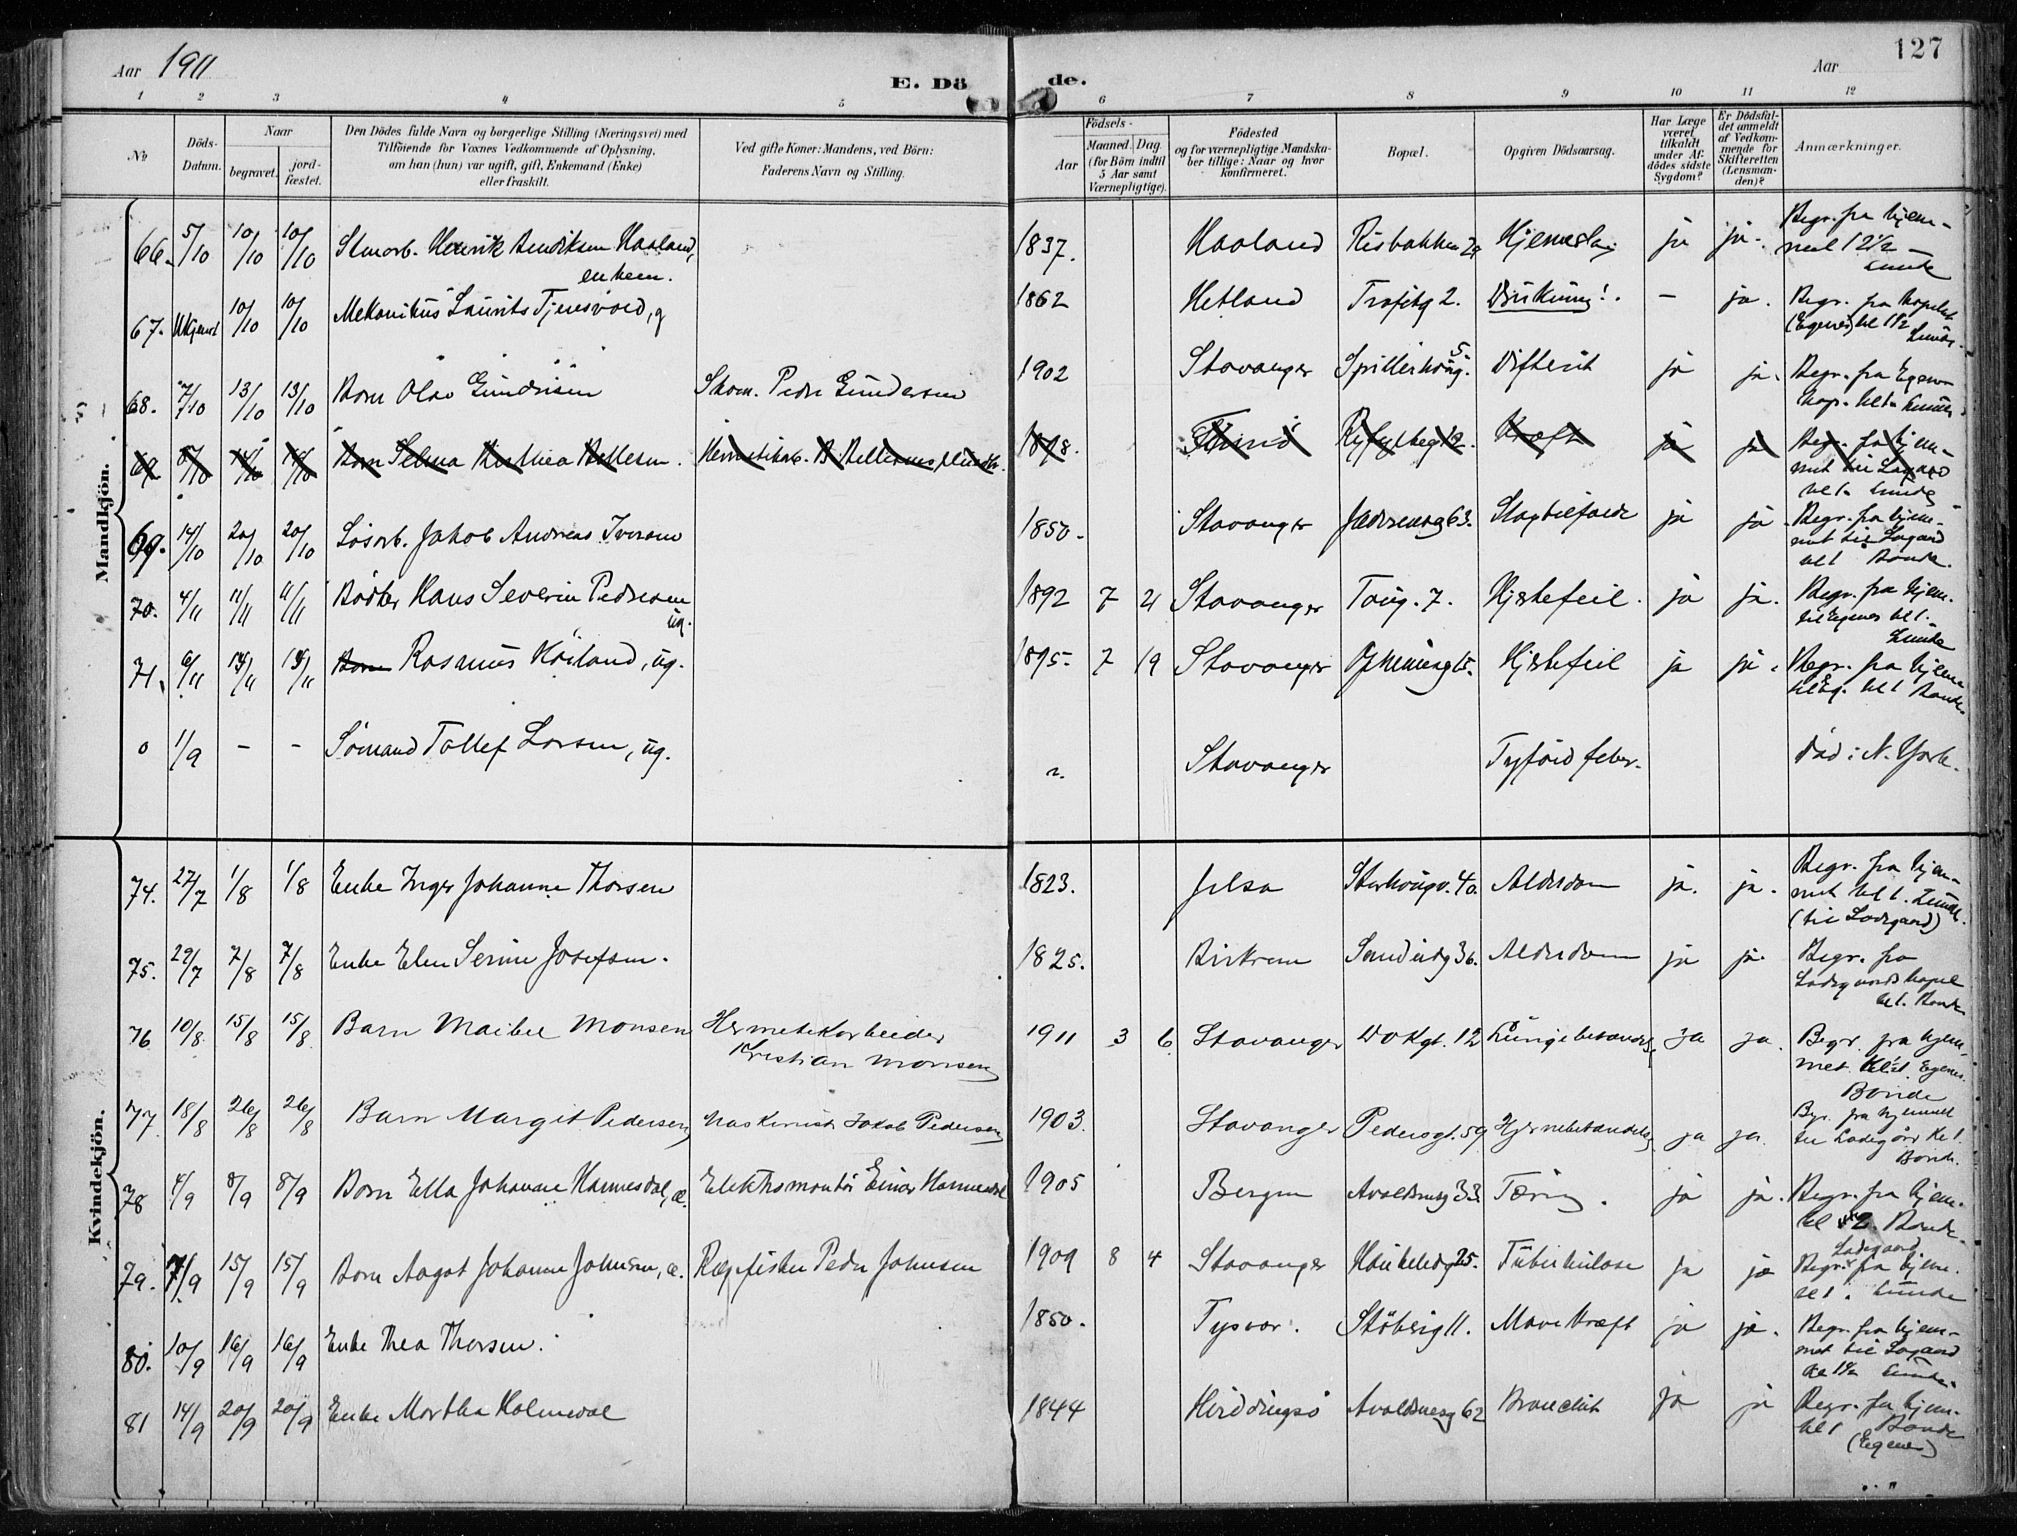 Aar 1911
E. Döde.
Aar
127
1 2 3 4 5 6 7 8 9 10 11 12
No
Döds-Datum.
Naar
begravet.
jordfæstet.
Den Dödes fulde Navn og borgerlige Stilling (Næringsvei) med
Tilföiende for Voxnes Vedkommende af Oplysning,
om han (hun) var ugift, gift, Enkemand (Enke)
eller fraskilt.
Ved gifte Koner: Mandens, ved Börn:
Faderens Navn og Stilling.
Födsels-
Aar
Maaned. Dag.
(for Börn indtil
5 Aar samt
Værnepligtige).
Födested
og for værnepligtige Mandskaber tillige: Naar og hvor
konfirmeret.
Bopæl.
Opgiven Dödsaarsag.
Har Læge
været
tilkaldt
under Afdödes sidste
Sygdom?
Er Dödsfaldet anmeldt
af Vedkommende for
Skifteretten
(Lensmanden)?
Anmærkninger.
Mandkjön.
66. 5/10 10/10 10/10 Henrik Haaland, enkem. 1837. Haaland Risbakken ja ja. Begr. fra hjemmet 12½ Lunde
67. Ukjent 10/10 10/10 Mekanikus Laurits Tjensvold, g 1862 Hetland 2. Drukning!. - ja. Begr. fra kapellet (Egenes) kl 1½ Lunde.
68. 7/10 13/10 13/10 Barn Olav Gundersen Skom. Peder Gundersen 1902 Stavanger 5. Difterit ja ja. Begr. fra Egenes kap. kl 1 Lunde
69 8/10 14/10 14/10 Barn Selma 1898. Kræft ja ja Begr. fra hjemmet til Lagaard kl 1 Lunde
69. 14/10 20/10 20/10 Løsarb. Jakob Andreas Iversen 1850. Stavanger Jæderveig 63. Slagtilfælde ja ja. Begr. fra hjemmet til Lagaard kl 1 Bonde.
70. 4/11 11/11 11/11 Bødker Hans Severin Pedersen ug. 1892 7 21 Stavanger Taug. 7. Hjertefeil. ja ja. Begr. fra hjem. til Egenes kl 1. Lunde
71. 6/11 14/11 14/11 Barn Rasmus Høiland, ug. 1895. 7 19 Stavanger 15. Hjertefeil ja ja. Begr. fra hjem. til Eg. kl 1 Bonde.
0 1/9 - - Sømand Tollef Larsen, ug. Stavanger Tyfoid feber. Død i N. York.
Kvindekjön.
74. 27/7 1/8 1/8 Enke Inger Johanne Thorsen 1823. Jelsa Storhougv. 40. Alderdom ja. ja. Begr. fra hjemmet kl 1. Lunde. (til Ladegaard)
75. 29/7 7/8 7/8 Enke Elen Serine Josefsen. 1825. Birkrem 36. Alderdom ja ja. Begr. fra Ladegaards kapel kl 1. Bonde
76 10/8 15/8 15/8 Barn Maibel Monsen Hermetikarbeider Kristian Monsen 1911 3 6 Stavanger Dokgt. 12 Lungebetændelse ja ja. Begr. fra hjemmet kl 1. Egenes. Bonde
77 18/8 26/8 26/8 Barn Margit Pedersen Maskinist Jakob Pedersen 1903. Stavanger Pedersgt. 59 Hjernebetændelse ja ja. Bgr. fra hjemmet til Ladegård kl 1. Bonde.
78 4/9 8/9 8/9 Barn Ella Johanne Hannesdal, æ. Elektromontør Einar Hannesdal 1905 Bergen Avaldsnesg 33 Tæring. ja ja. Begr. fra hjem. kl 2. Bonde.
79. 7/9 15/9 15/9 Barn Aagot Johanne Johnsen, æ. Rægefisker Peder Johnsen 1909 8 4 Stavanger Haukeliedg 25. Tuberkulose ja ja Ladegaard Begr. fra hjem. kl 1. Lunde
80. 10/9 16/9 16/9 Enke Thea Thorsen. 1850. Tysvær. Støberig 11. Mavekræft ja ja. Begr. fra hjemmet til Lagaard kl 1½ Lunde.
81 14/9 20/9 20/9 Enke Martha Holmedal 1844 Avaldsnesg 62 Bronchit ja ja Begr. fra hjem. kl 1 Bonde (Egenes)